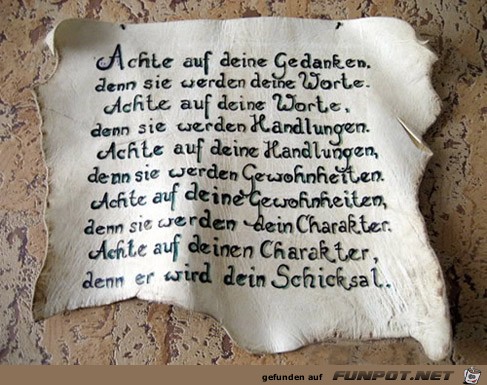 Achte auf deine Gedanken.
denn sie werden deine Worte.
Achte auf deine Worte,
denn sie werden Handlungen.
Achte auf deine Handlungen,
denn sie werden Gewohnheiten.
Achte auf deine Gewohnheiten,
denn sie werden dein Charakter.
Achte auf deinen Charakter,
denn er wird dein Schicksal.
gefunden auf FUNPOT.NET